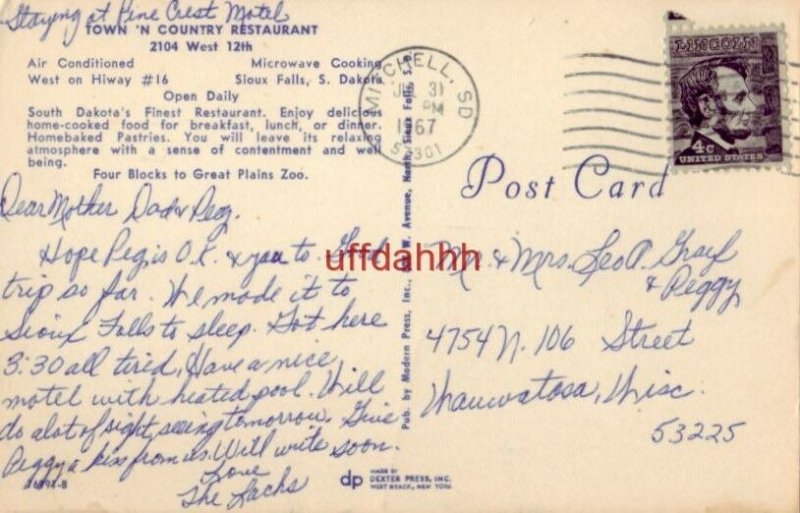 Staying at Pine Crest Motel
TOWN 'N COUNTRY RESTAURANT
2104 West 12th
Air Conditioned Microwave Cooking
West on Hiway #16 Sioux Falls, S. Dakota
Open Daily
South Dakota's Finest Restaurant. Enjoy delicious
home-cooked food for breakfast, lunch, or dinner.
Homebaked Pastries. You will leave its relaxing
atmosphere with a sense of contentment and well
being.
Four Blocks to Great Plains Zoo.
Dear Mother Dad & Peg.
Hope Peg is O.K. & you to. Good
trip so far. We made it to
Sioux Falls to sleep. Got here
3:30 all tired. Have a nice
motel with heated pool. Will
do a lot of sight seeing tomorrow. Give
Peggy a kiss from us. Will write soon.
Love
The Lachs
Pub. by Modern Press, Inc., Avenue, North, Sioux Falls, S.D.
MITCHELL, SD
31
PM
1967
57301
LINCOLN
4c
UNITED STATES
Post Card
uffdahhh
Mr. & Mrs. Leo P.
& Peggy
4754 N. 106 Street
Wauwatosa, Wisc.
53225
dp
MADE BY
DEXTER PRESS, INC.
WEST NYACK, NEW YORK